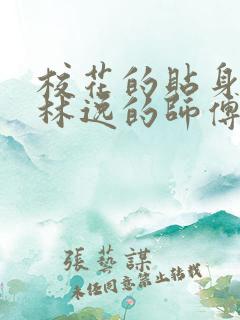 校花的貼身
林逸的師傅
張藝謀
未経同意禁止轉載